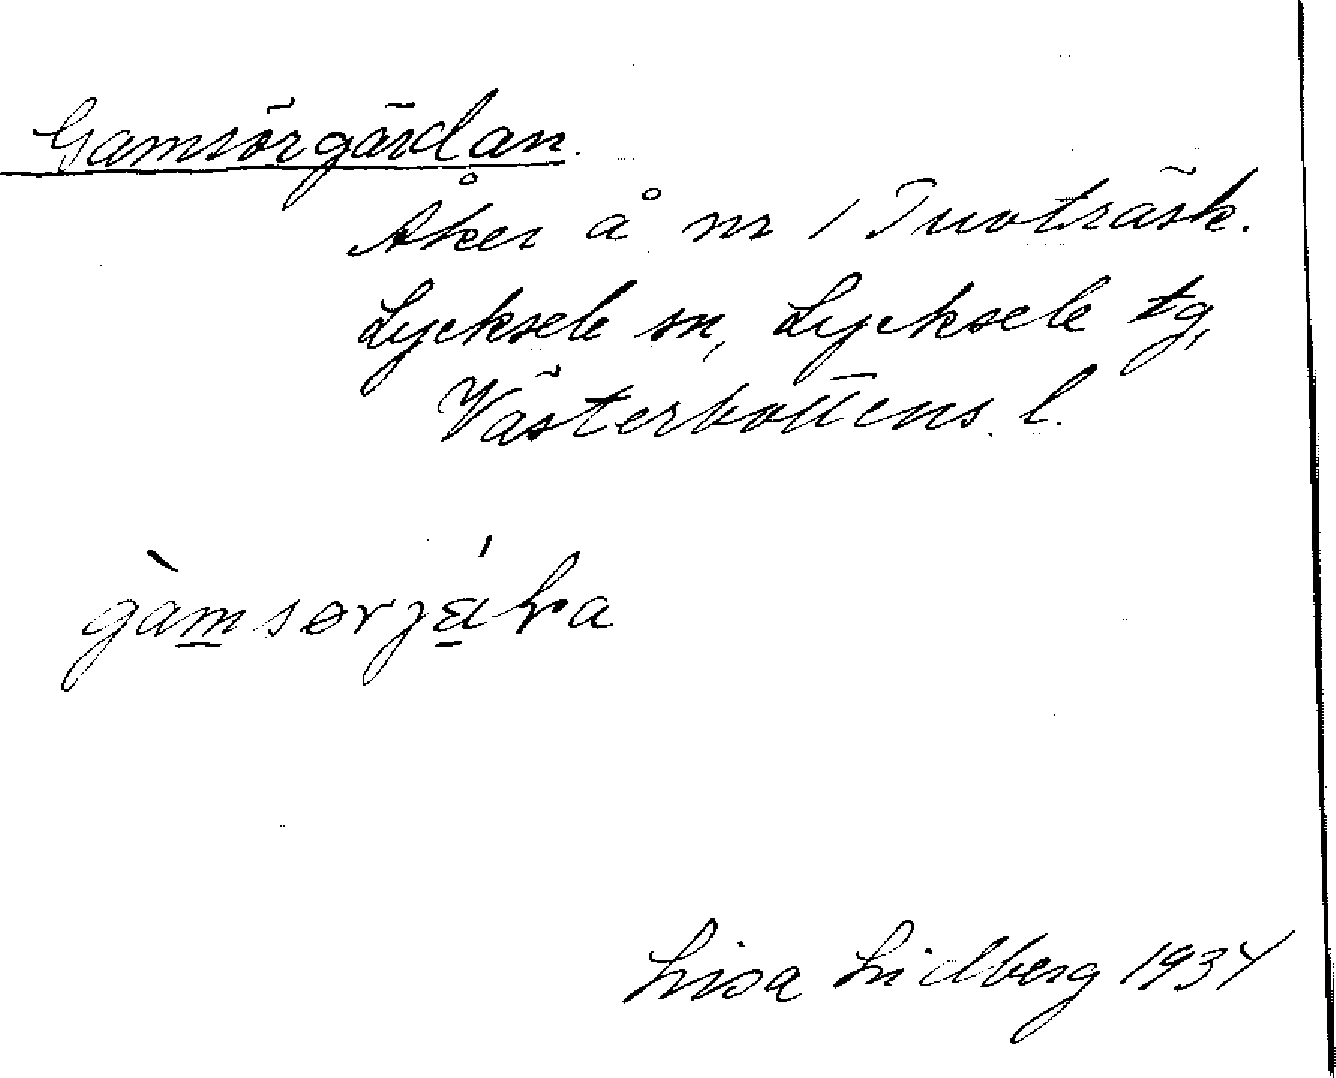 Gamsörgärdan.
Åker å nr 1 Tuvträsk.
Lycksele sn, Lycksele tg,
Västerbottens l.
gàmsørjáɽa
Lisa Lidberg 1934